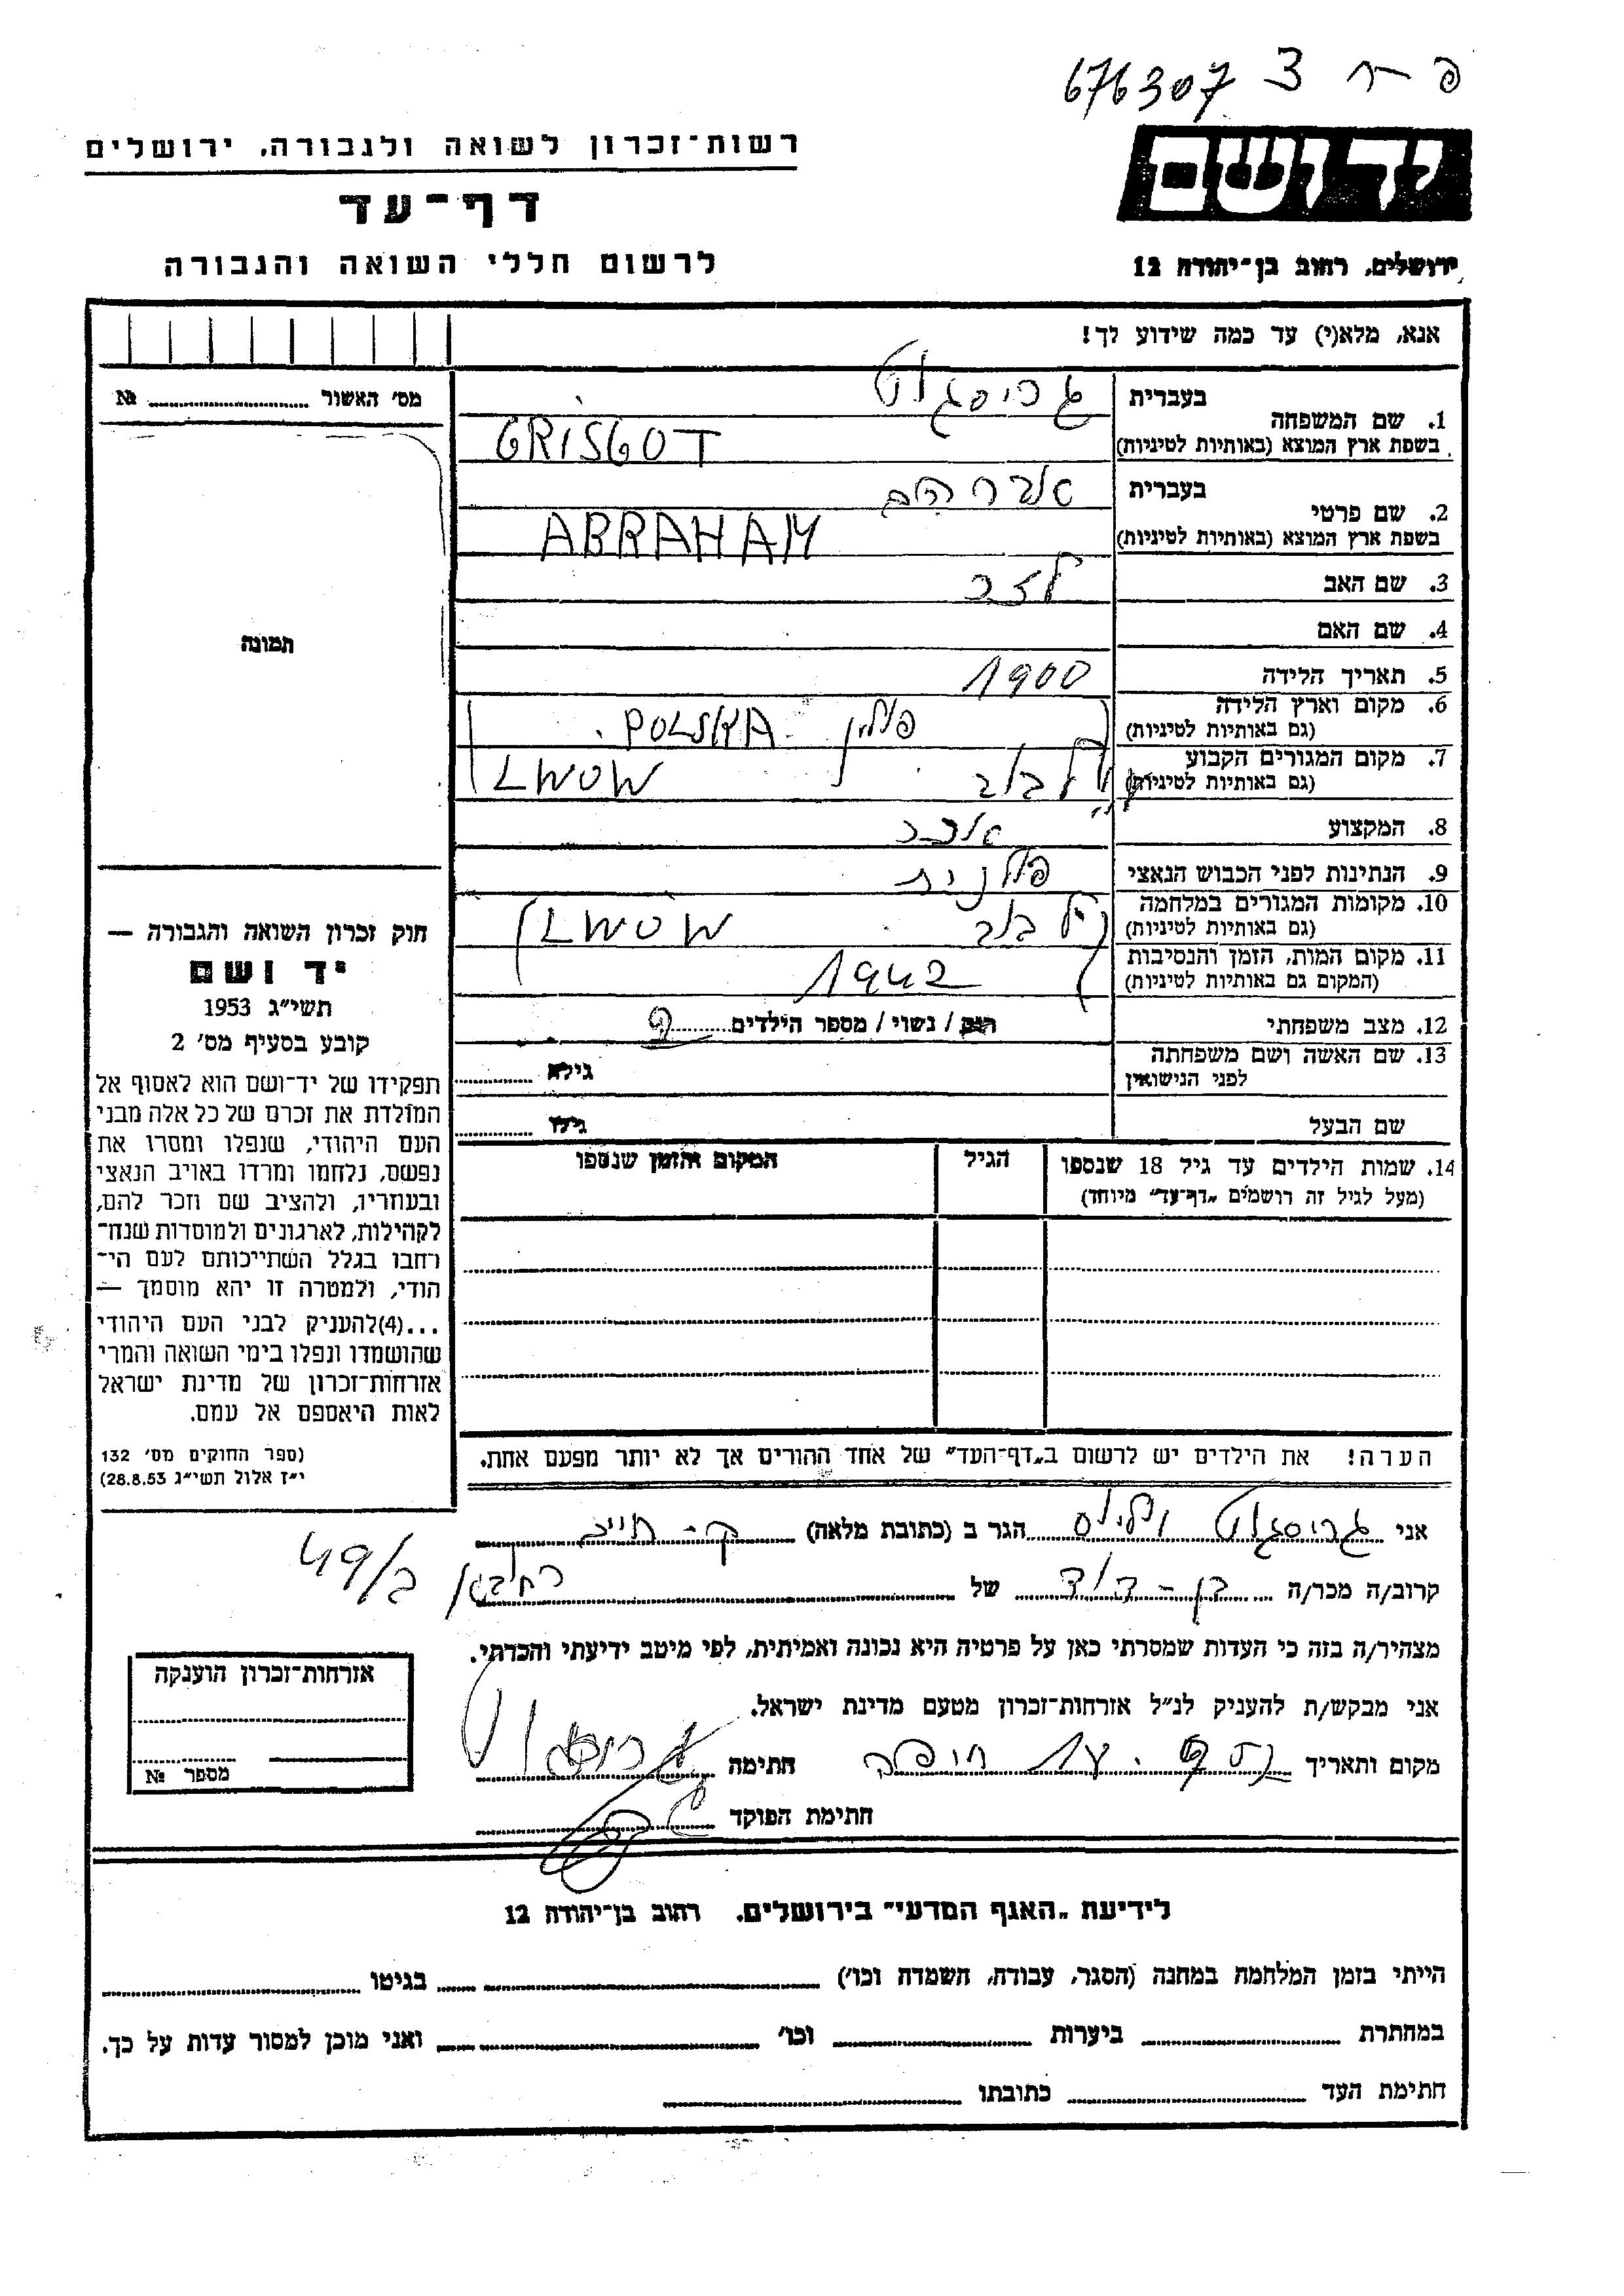 676307
יד ושם
ירושלים, רחוב בן־יהודה 12
רשות־זכרון לשואה ולגבורה, ירושלים
דף־עד
לרשום חללי השואה והגבורה
אנא, מלא(י) עד כמה שידוע לך!
מס׳ האשור № 
תמונה
חוק זכרון השואה והגבורה —
יד ושם
תשי״ג 1953
קובע בסעיף מס׳ 2
תפקידו של יד־ושם הוא לאסוף אל
המולדת את זכרם של כל אלה מבני
העם היהודי, שנפלו ומסרו את
נפשם, נלחמו ומרדו באויב הנאצי
ובעוזריו, ולהציב שם וזכר להם,
לקהילות, לארגונים ולמוסדות שנח־
רחבו בגלל השתייכותם לעם הי־
הודי, ולמטרה זו יהא מוסמך —
...(4)להעניק לבני העם היהודי
שהושמדו ונפלו בימי השואה והמרי
אזרחות־זכרון של מדינת ישראל
לאות היאספם אל עמם.
(ספר החוקים מס׳ 132
י״ז אלול תשי״ג 28.8.53)
1. שם המשפחה
בעברית גריסגוט
בשפת ארץ המוצא (באותיות לטיניות) GRISGOT
2. שם פרטי
בעברית אברהם
בשפת ארץ המוצא (באותיות לטיניות) ABRAHAM
3. שם האב
4. שם האם
5. תאריך הלידה 1900
6. מקום וארץ הלידה
(גם באותיות לטיניות) פולין POLSKA
7. מקום המגורים הקבוע
(גם באותיות לטיניות) לבוב LWOW
8. המקצוע
9. הנתינות לפני הכבוש הנאצי פולנית
10. מקומות המגורים במלחמה
(גם באותיות לטיניות) לבוב LWOW
11. מקום המות, הזמן והנסיבות
(המקום גם באותיות לטיניות) 1942
12. מצב משפחתי רווק / נשוי / מספר הילדים
13. שם האשה ושם משפחתה
לפני הנישואין גילא
שם הבעל גילו
14. שמות הילדים עד גיל 18 שנספו
(מעל לגיל זה רושמים „דף־עד״ מיוחד)
הגיל
המקום והזמן שנספו
הערה! את הילדים יש לרשום ב„דף־העד״ של אחד ההורים אך לא יותר מפעם אחת.
אני גריסגוט הגר ב (כתובת מלאה) ק-חיים
קרוב/ה מכר/ה בן-דוד של
49/ב
מצהיר/ה בזה כי העדות שמסרתי כאן על פרטיה היא נכונה ואמיתית, לפי מיטב ידיעתי והכרתי.
אני מבקש/ת להעניק לנ״ל אזרחות־זכרון מטעם מדינת ישראל.
מקום ותאריך חתימה גריסגוט
חתימת הפוקד
אזרחות־זכרון הוענקה
מספר №
לידיעת „האגף המדעי״ בירושלים, רחוב בן־יהודה 12
הייתי בזמן המלחמה במחנה (הסגר, עבודה, השמדה וכו׳) בגיטו
במחתרת ביערות וכו׳ ואני מוכן למסור עדות על כך.
חתימת העד כתובתו